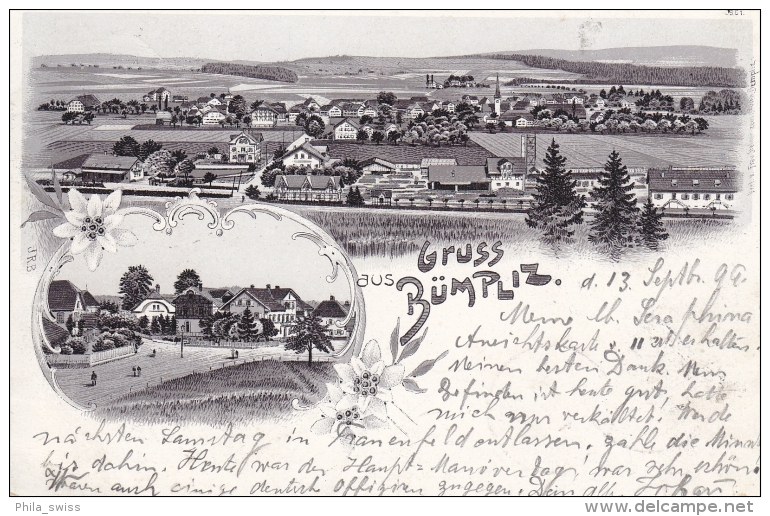 J.R.B
GRUSS
aus
BÜMPLIZ.
d. 13. Septbr. 99.
Meine lb. Seraphina
Ansichtskarte erhalten,
Meinen besten Dank. Mein
Befinden ist heute gut, hatte
mich nur verkältet. Werde
nächsten Samstag in Frauenfeld entlassen, zähle die Minut
bis dahin. Heute war der Haupt- Manöver Tag, war sehr schön!
Waren auch einige deutsch Offiziere zugegen. Dein
Phila_swiss
delcampe.net